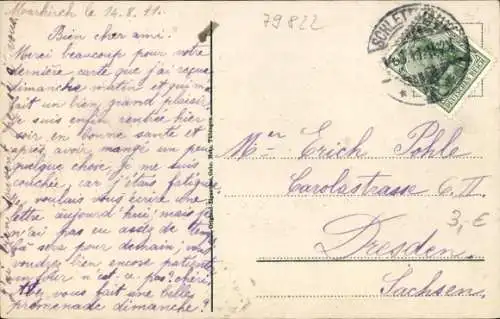 Markirch le 14.8.11.
79822
Bien cher ami!
Merci beaucoup pour votre
dernière carte que j'ai reçue
dimanche matin et qui m'a
fait un bien grand plaisir
Je suis enfin rentrée hier
soir en bonne santé et
après, avoir mangé un peu
quelque chose, je me suis
couchée, car j'étais fatiguée
Je voulais vous écrire une
lettre aujourd'hui; mais je
n'ai pas eu assez de temps
sera pour demain; vous
voudrez bien encore patienter
un jour n'est-ce pas? chéri
vous fait une belle
promenade dimanche?
SCHLETTSTADT
DEUTSCHES REICH
Mr Erich Pohle
Carolastrasse 6. II
3,-€
Dresden.
Sachsen.